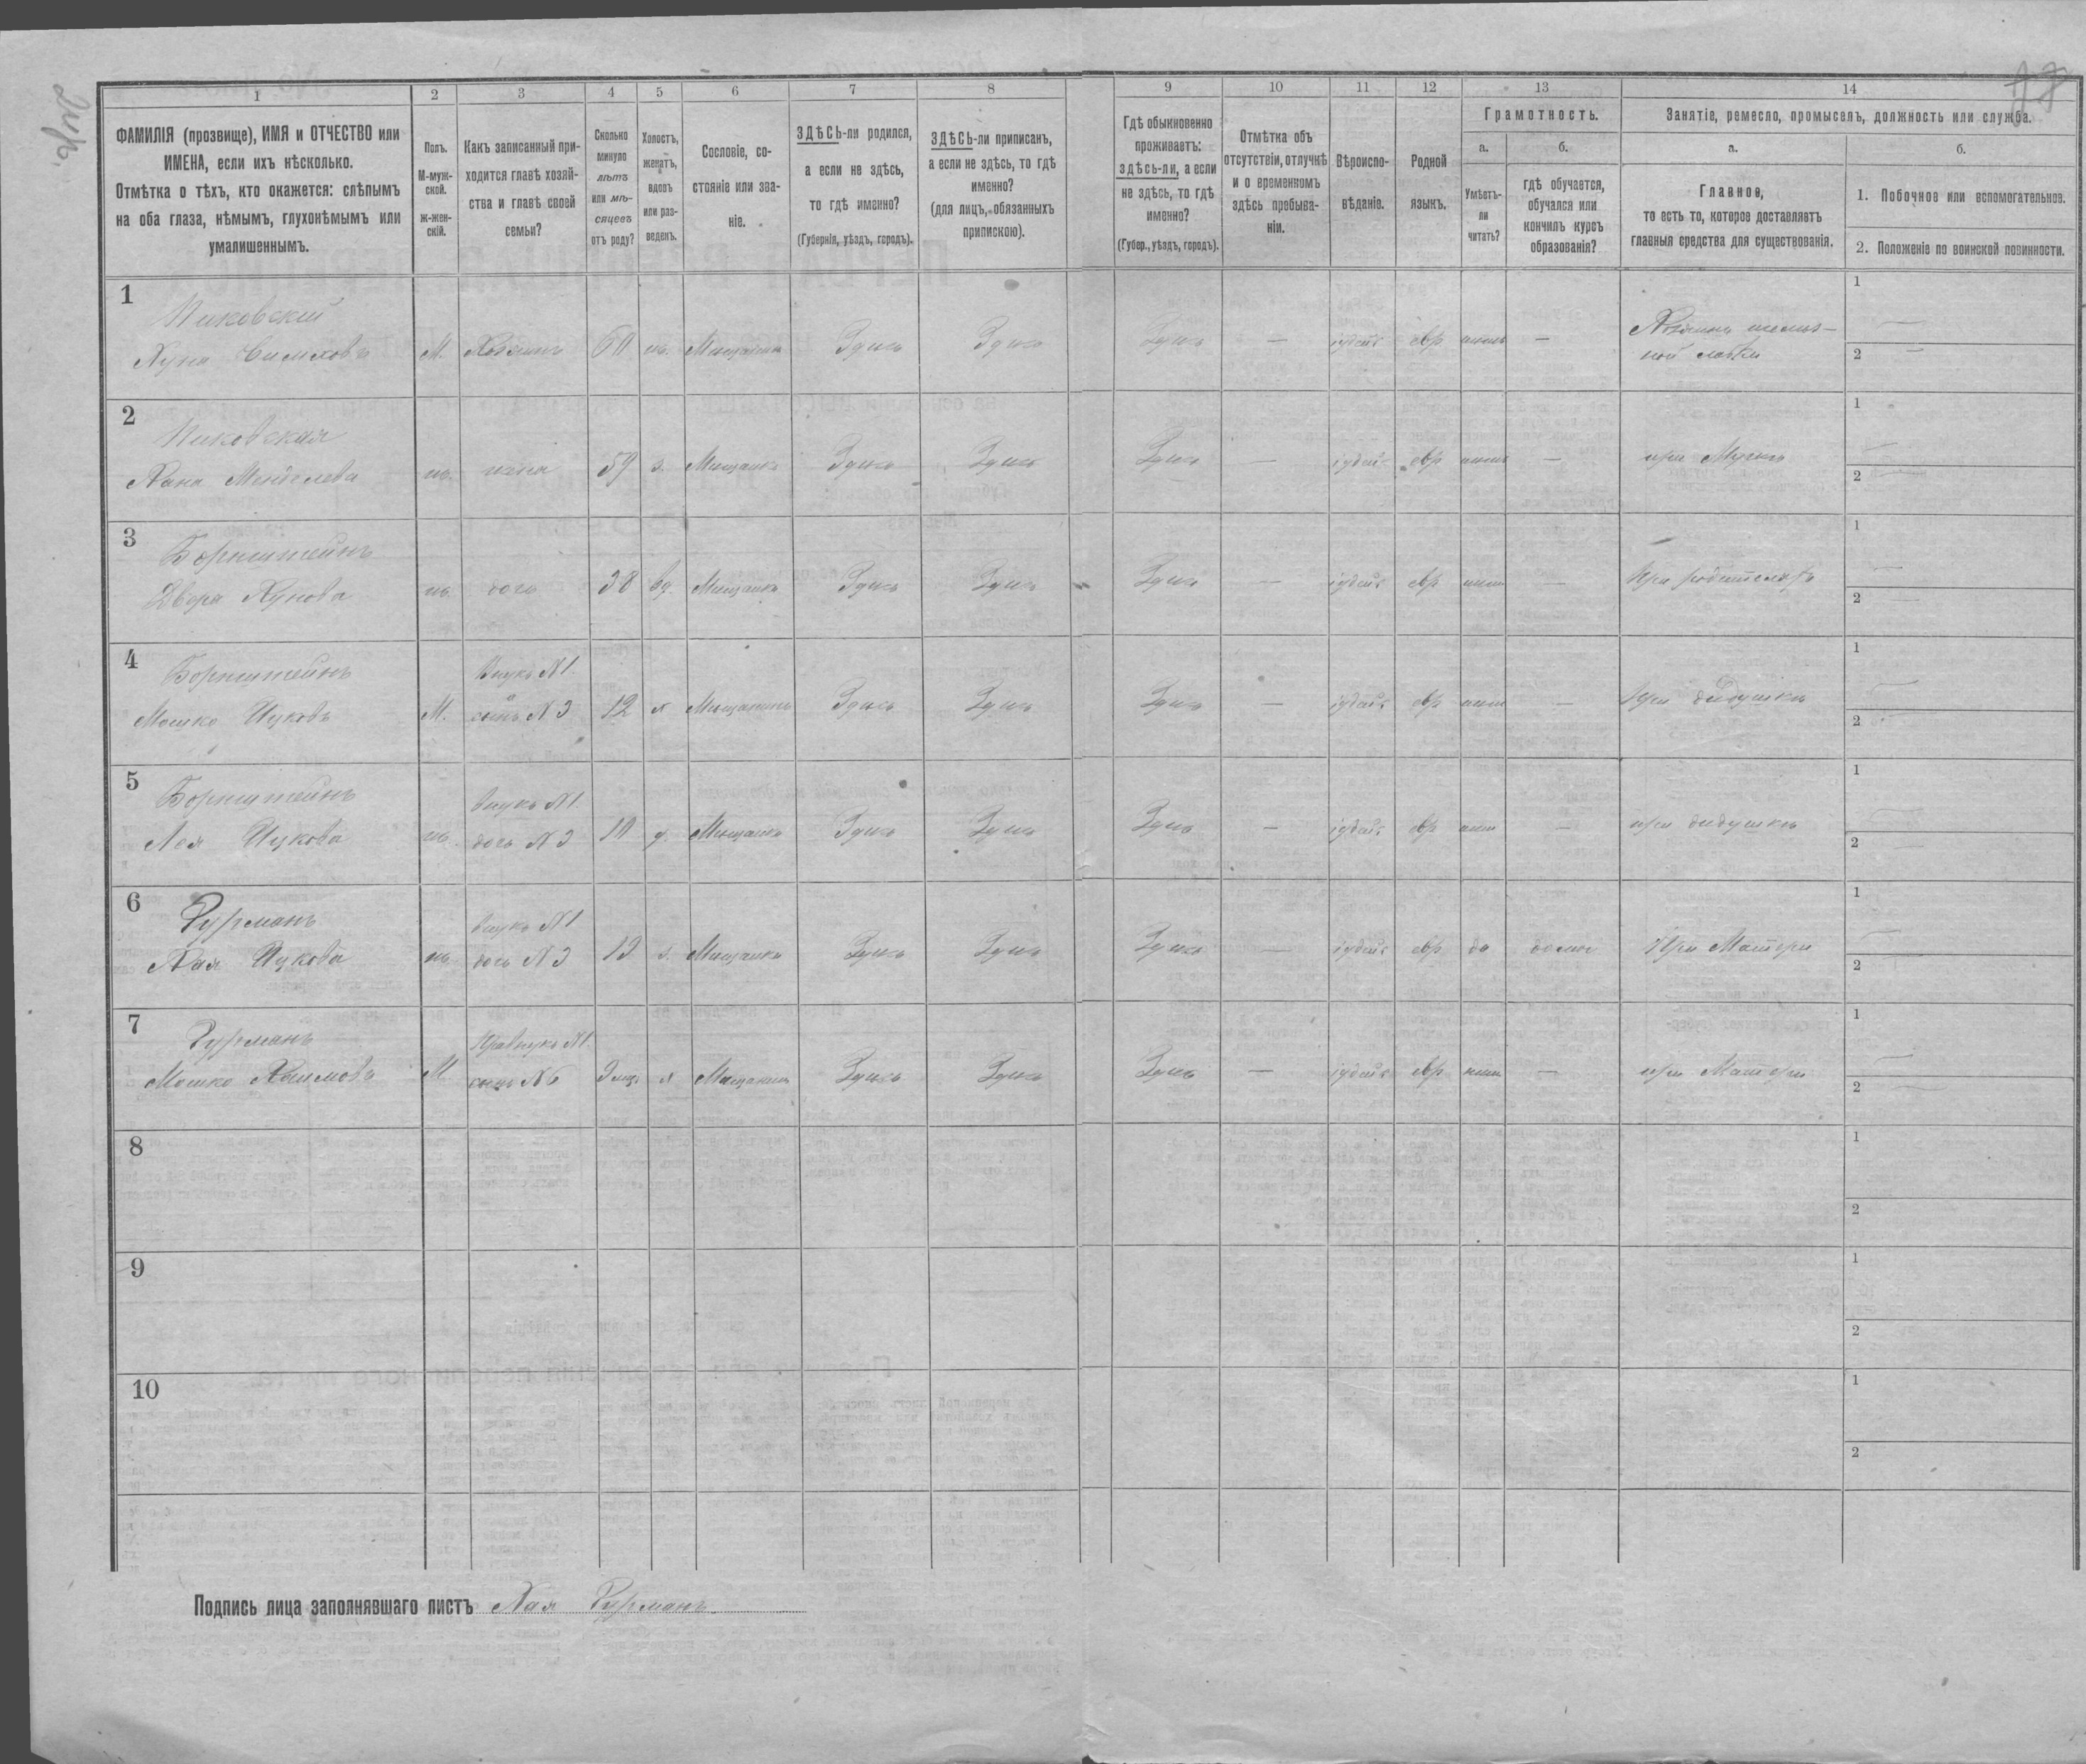 1 2 3 4 5 6 7 8 9 10 11 12 13 14
ФАМИЛІЯ (прозвище), ИМЯ и ОТЧЕСТВО или
ИМЕНА, если ихъ нѣсколько.
Отмѣтка о тѣхъ, кто окажется: слѣпымъ
на оба глаза, нѣмымъ, глухонѣмымъ или
умалишеннымъ.
Полъ.
М-муж-
ской.
ж-жен-
скій.
Какъ записанный при-
ходится главѣ хозяй-
ства и главѣ своей
семьи?
Сколько
минуло
лѣтъ
или мѣ-
сяцевъ
отъ роду?
Холостъ,
женатъ,
вдовъ
или раз-
веденъ.
Сословіе, со-
стояніе или зва-
ніе.
ЗДѢСЬ-ли родился,
а если не здѣсь,
то гдѣ именно?
(Губернія, уѣздъ, городъ).
ЗДѢСЬ-ли приписанъ,
а если не здѣсь, то гдѣ
именно?
(для лицъ, обязанныхъ
припискою).
Гдѣ обыкновенно
проживаетъ:
здѣсь-ли, а если
не здѣсь, то гдѣ
именно?
(Губер., уѣздъ, городъ).
Отмѣтка объ
отсутствіи, отлучкѣ
и о временномъ
здѣсь пребыва-
ніи.
Вѣроиспо-
вѣданіе.
Родной
языкъ.
Грамотность.
а.
Умѣетъ-
ли
читать?
б.
гдѣ обучается,
обучался или
кончилъ курсъ
образованія?
Занятіе, ремесло, промыселъ, должность или служба.
а.
Главное,
то есть то, которое доставляетъ
главныя средства для существованія.
б.
1. Побочное или вспомогательное.
2. Положеніе по воинской повинности.
1
Хуна
М. Хозяинъ 60 Мѣщанинъ Здѣсь Здѣсь Здѣсь — іудейс евр —
ной лавки
1 —
2 —
2
Хана Менделева
жена 59 Мѣщанка Здѣсь Здѣсь Здѣсь — іудейс евр — при Мужѣ
1 —
2 —
3
Борнштейнъ
Двора Хунова дочь 38 вд. Мѣщанка Здѣсь Здѣсь Здѣсь — іудейс евр — При родителяхъ
1 —
2 —
4
Борнштейнъ
Внукъ N1.
Мошко Ицковъ М. сынъ N3 12 х Мѣщанинъ Здѣсь Здѣсь Здѣсь — іудейс евр — При дедушкѣ
1 —
2 —
5
Борнштейнъ
внукъ N1.
Лея Ицкова дочь N3 10 Мѣщанка Здѣсь Здѣсь Здѣсь — іудейс евр — при дедушкѣ
1 —
2 —
6
Гурманъ
внукъ N1
Хая Ицкова дочь N3 Мѣщанка Здѣсь Здѣсь Здѣсь — іудейс евр да дома При Матери
1 —
2 —
7
Гурманъ
Правнукъ N1.
Мошко Хаимовъ М сынъ N6 х Мѣщанинъ Здѣсь Здѣсь Здѣсь — іудейс евр — при Матери
1 —
2 —
8
1
2
9
1
2
10
1
2
Подпись лица заполнявшаго листъ Хая Гурманъ